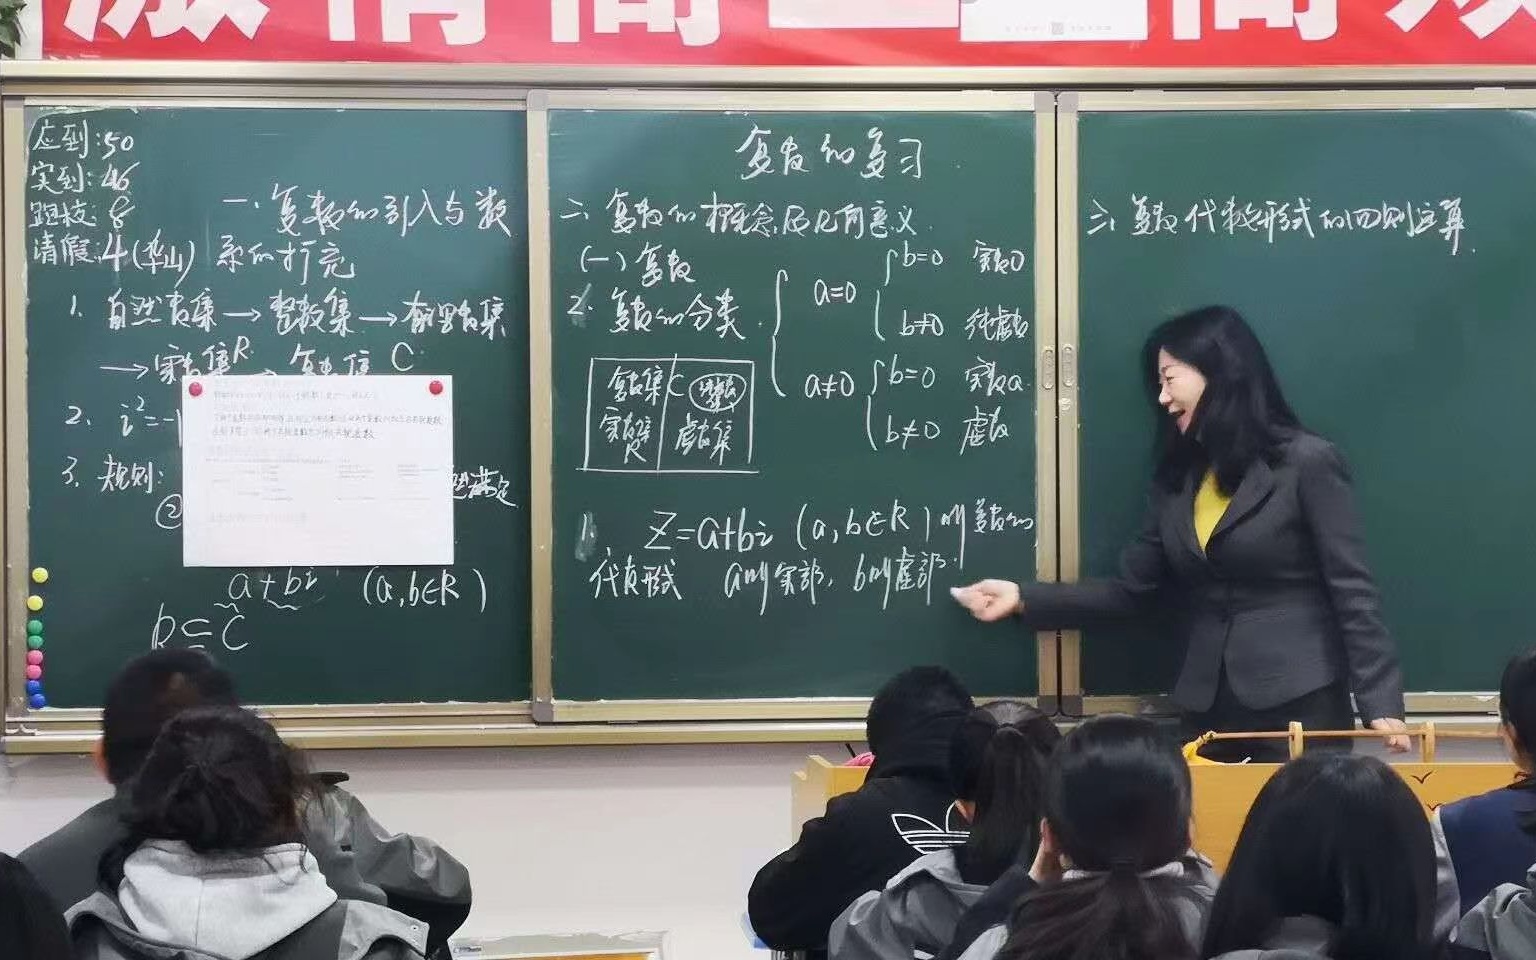 激情高三 高效
应到:50
实到:46
跑校:8
请假:4(华山)
一.复数的引入与数
系的扩充
1. 自然数集→整数集→有理数集
→实数集R→复数集C
2. i²=-1
3. 规则:
②
a+bi (a,b∈R)
R⊆C
复数的复习
二、复数的概念及几何意义
(一)复数
2. 复数的分类
a=0
b=0 实数0
b≠0 纯虚数
a≠0
b=0 实数a
b≠0 虚数
复数集C
实数集R
虚数集
1. Z=a+bi (a,b∈R)叫复数的
代数形式 a叫实部,b叫虚部.
三、复数代数形式的四则运算.